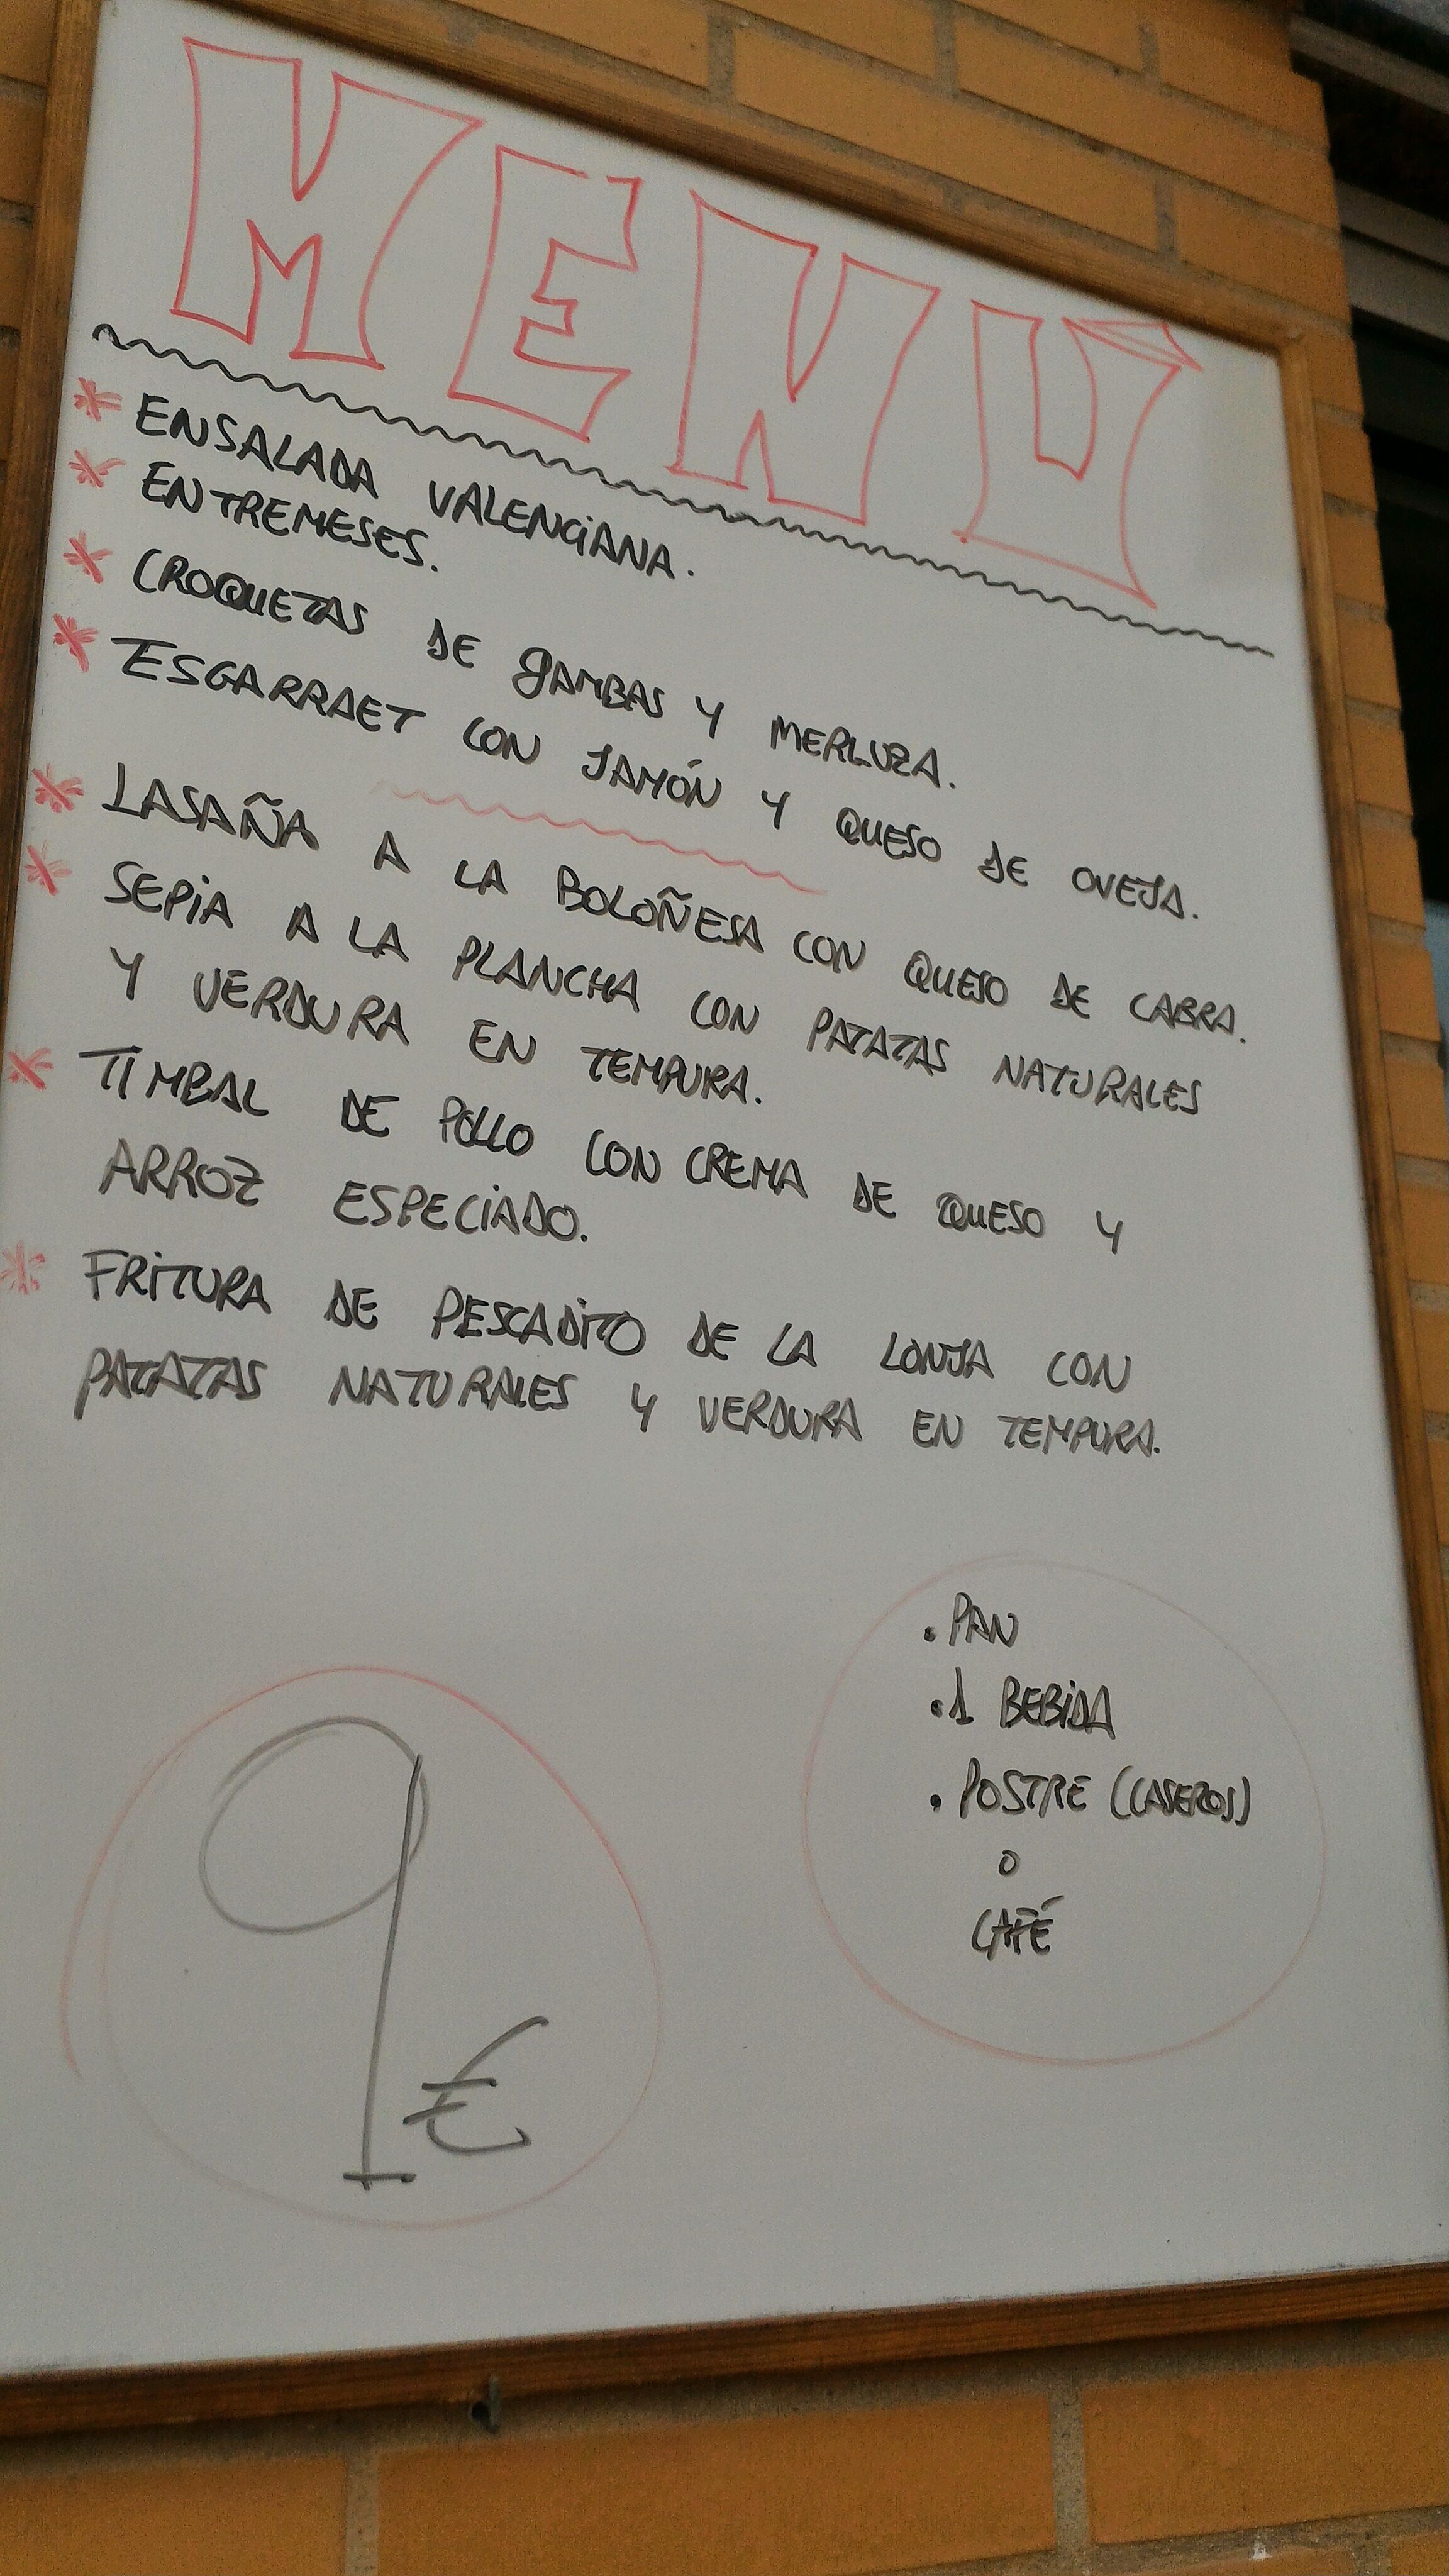 MENÚ
* ENSALADA VALENCIANA.
* ENTREMESES.
* CROQUETAS DE GAMBAS Y MERLUZA.
* ESGARRAET CON JAMÓN Y QUESO DE OVEJA.
* LASAÑA A LA BOLOÑESA CON QUESO DE CABRA.
* SEPIA A LA PLANCHA CON PATATAS NATURALES
Y VERDURA EN TEMPURA.
* TIMBAL DE POLLO CON CREMA DE QUESO Y
ARROZ ESPECIADO.
* FRITURA DE PESCADITO DE LA LONJA CON
PATATAS NATURALES Y VERDURA EN TEMPURA.
. PAN
. 1 BEBIDA
. POSTRE (CASEROS)
O
CAFÉ
9 €